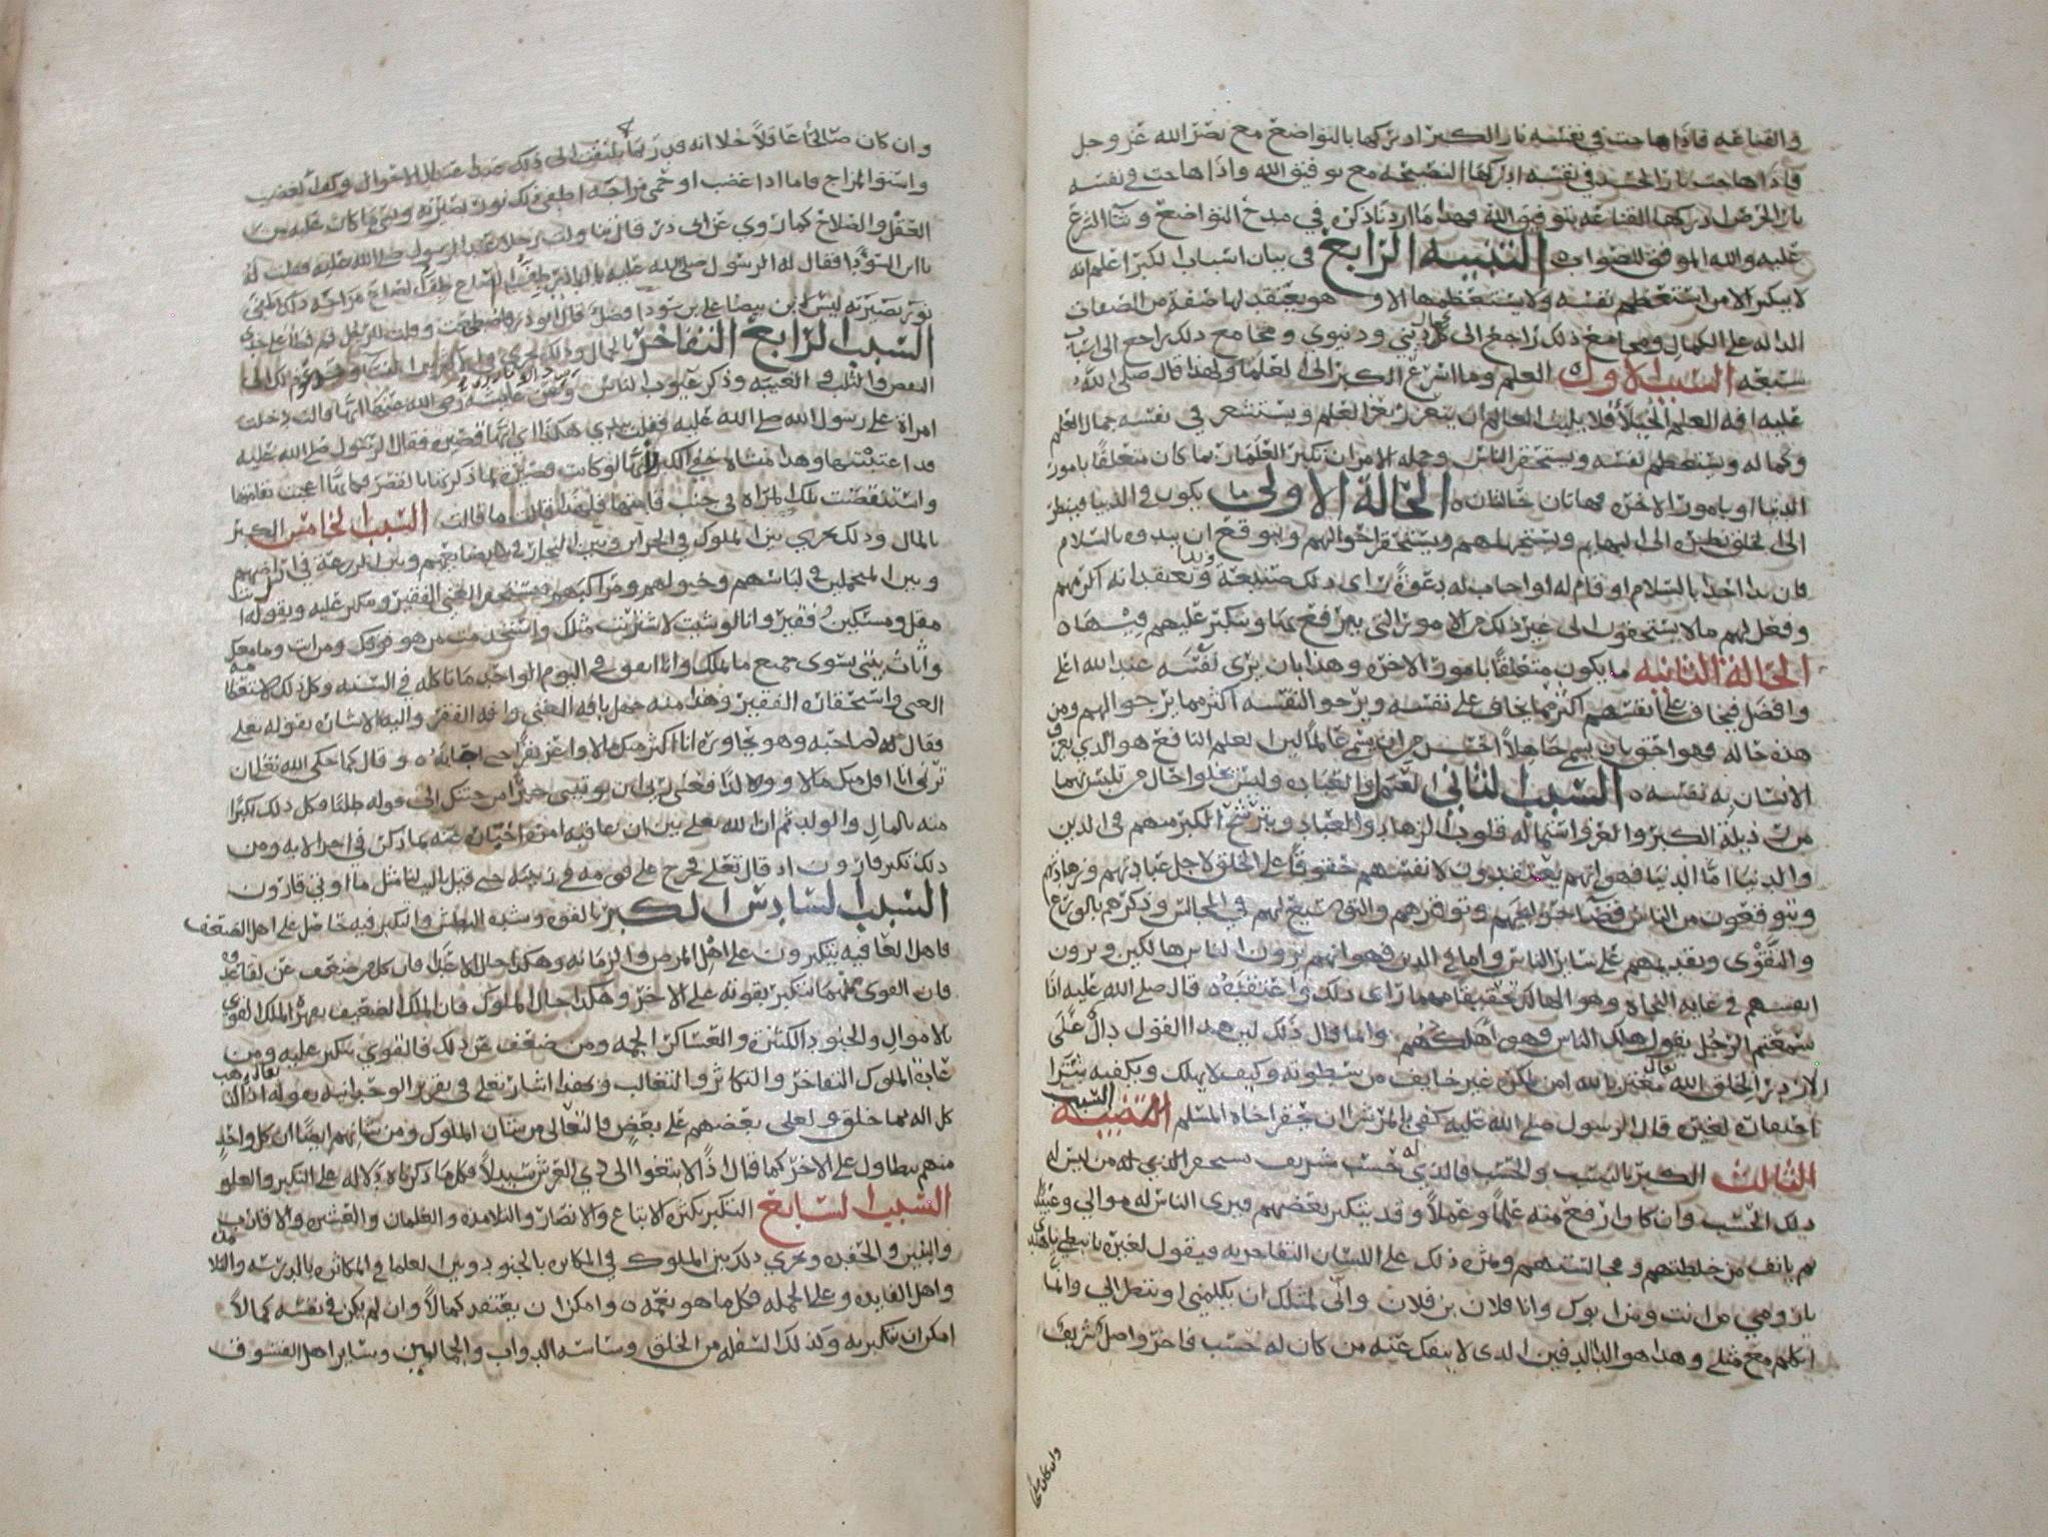 والقناعه فاذا هاجت في نفسه نار الكبر ادركها بالتواضع مع نصر الله عز وجل
فاذا هاجت نار الحسد في نفسه ادركها النصيحه مع توفيق الله واذا هاجت في نفسه
نار الحرص ادركها القناعه بتوفيق الله فهذا ما اردنا ذكره في مدح التواضع وثنا الشرع
عليه والله الموفق للصواب التنبيه الرابع في بيان اسباب الكبر اعلم انه
لا يتكبر الا من استعظم نفسه ولا يستعظمها الا وهو يعتقد لها صفة من الصفات
الداله على الكمال ومجامع ذلك راجع الى كمال ديني ودنيوي ومجامع ذلك راجع الى اسباب
سبعه السبب الاول العلم وما اسرع الكبر الى العلما ولهذا قال صلى الله
عليه افه العلم الخيلا فلا يلبث العالم ان يتعزز بعز العلم ويستشعر في نفسه جمال العلم
وكماله ويستعظم نفسه ويستحقر الناس وجمله الامر ان تكبر العلما ربما كان متعلقا بامور
الدنيا او بامور الاخره فهاتان حالتان الحالة الاولى ما يكون في الدنيا فينظر
الى الخلق نظره الى البهايم ويستجهلهم ويستحقر احوالهم ويتوقع ان يبدوه بالسلام
فان بدا احدا بالسلام او قام له او اجاب له دعوة راى ذلك صنيعة ويدا ويعتقد انه اكرمهم
وفعل لهم ما لا يستحقون الى غير ذلك من الامور التي يترفع بها ويتكبر عليهم فيها
الحالة الثانيه ما يكون متعلقا بامور الاخره وهذا بان يرى نفسه عند الله اعلى
وافضل فيخاف على انفسهم اكثر مما يخاف على نفسه ويرجو لنفسه اكثر مما يرجو لهم ومن
هذه حاله فهو احق بان يسمى جاهلا من ان يسمى عالما لان العلم النافع هو الذي يعرف
الانسان به نفسه السبب الثاني العمل والعباده وليس يخلوا حال من تلبس بهما
من رذيلة الكبر والعز واستماله قلوب الزهاد والعباد ويترشح الكبر منهم في الدين
والدنيا اما الدنيا فهو انهم يعتقدون لانفسهم حقوقا على الخلق لاجل عبادتهم وزهادتهم
ويتوقعون من الناس قضا حوايجهم وتوقيرهم والتوسيع لهم في المجالس وذكرهم بالورع
والتقوى وتقديمهم على ساير الناس واما في الدين فهو انهم يرون الناس هالكين ويرون
انفسهم في غايه النجاه وهو الهالك تحقيقا مهما راى ذلك واعتقده قال صلى الله عليه اذا
سمعتم الرجل يقول هلك الناس فهو اهلكهم وانما قال ذلك لان هذا القول دال على
الازدرا لخلق الله تعالى مغتر بالله امن لمكره غير خايف من سطوته وكيف لا يهلك ويكفيه شرا
احتقاره لغيره قال الرسول صلى الله عليه كفى بالمرء شرا ان يحقر اخاه المسلم التنبيه السبب
الثالث الكبر بالنسب والحسب فالذي له حسب شريف يستحقر الذي من ليس له
ذلك الحسب وان كان ارفع منه علما وعملا وقد يتكبر بعضهم فيرى الناس له موالي وعبيد
ثم يانف من خلطتهم ومجالستهم وثمره ذلك على اللسان التفاخر به فيقول لغيره يا نبطي يا هندي
يا رومي من انت ومن ابوك وانا فلان بن فلان وانى لمثلك ان يكلمني او ينظر الي وانما
اتكلم مع مثلي وهذا هو الدا الدفين الذي لا ينفك عنه من كان له حسب فاخر واصل شريف
وان كان صالحا
وان كان صالحا عاقلا خلا انه قد ربما يلتفت الى ذلك عند اعتدال الاحوال وكف الغضب
واستوا المزاج فاما اذا غضب او حمي مزاجه اطفى ذلك نور بصيرته
العقل والصلاح كما روي عن ابي ذر قال قاولت رجلا عند الرسول صلى الله عليه فقلت له
يا ابن السودا فقال له الرسول صلى الله عليه يا اباذر طف الصاع طف الصاع
نور بصيرته ليس لابن بيضا على ابن سودا فضل قال ابو ذر فاضطجعت وقلت للرجل قم فطا على خدي
السبب الرابع التفاخر بالجمال وذلك يجري
النقص والثلب في الغيبه وذكر عيوب الناس وعن عايشه رضي الله عنها انها قالت دخلت
امراة على رسول الله صلى الله عليه فقلت بيدي هكذا اي انها قصيره فقال الرسول صلى الله عليه
قد اغتبتها وهذا منشاه خفي الكبر لانها لو كانت قصيره لما ذكرتها بالقصر فكانها اعجبت بقامتها
واستنقصت تلك المراه في جنب قامتها فلهذا قالت ما قالت السبب الخامس الكبر
بالمال وذلك يجري بين الملوك في الخزاين وبين التجار في بضايعهم وبين الزرعة في اراضيهم
وبين المتجملين في لباسهم وخيولهم ومراكبهم فيستحقر الغني الفقير ويتكبر عليه ويقول انت
مقل ومسكين فقير وانا لو شيت لاشتريت مثلك واستخدمت من هو فوقك ومن انت وما معك
واثاث بيتي يسوى جميع مالك وانا انفق في اليوم الواحد ما تاكله في السنه وكل ذلك لاستعظامه
الغنى واستحقاره الفقير وهذا منه جهل بافه الغنى وافه الفقر واليه الاشاره بقوله تعالى
فقال لصاحبه وهو يحاوره انا اكثر منك مالا واعز نفرا حتى اجابه وقال كما حكى الله تعالى ان
ترني انا اقل منك مالا وولدا فعسى ربي ان يوتيني خيرا من جنتك الى قوله طلبا فكل ذلك تكبرا
منه بالمال والولد ثم ان الله تعالى بين ان عاقبه امره بما ذكره في اخر الايه ومن
ذلك تكبر قارون اذ قال تعالى فخرج على قومه في زينته حتى قيل يا ليت لنا مثل ما اوتي قارون
السبب السادس الكبر بالقوه وشده البطش والتكبر فيه حاصل على اهل الضعف
فاهل العافيه يتكبرون على اهل المرض والزمانه
فان القوي منهما يتكبر بقوته على الاخر وهكذا حال الملوك فان الملك الضعيف يقهره الملك القوي
بالاموال والجنود الكثيره والعساكر الجمه ومن ضعف عن ذلك فالقوي يتكبر عليه ومن
عادة الملوك التفاخر والتكاثر والتغالب وبهذا اشار تعالى في تقرير الوحدانيه بقوله تعالى اذا لذهب
كل اله بما خلق ولعلى بعضهم على بعض فالتعالى من شان الملوك ومن شانهم ايضا ان كل واحد
منهم يطاول على الاخر كما قال اذا لابتغوا الى ذي العرش سبيلا فكل ما ذكرناه دلاله على التكبر والعلو
السبب السابع التكبر بكثره الاتباع والانصار والتلامذه والغلمان والعشيره والاقارب
والبنين والحفده ويجري ذلك بين الملوك في المكاثره بالجنود وبين العلما في المكاثره بالدرسه والتلامذه
واهل الفايده وعلى الجمله فكل ما هو نعمه وامكن ان يعتقد كمالا وان لم يكن في نفسه كمالا
امكن ان يتكبر به وكذلك السفله من الخلق وساسه الدواب والجمالين وساير اهل الفسوق